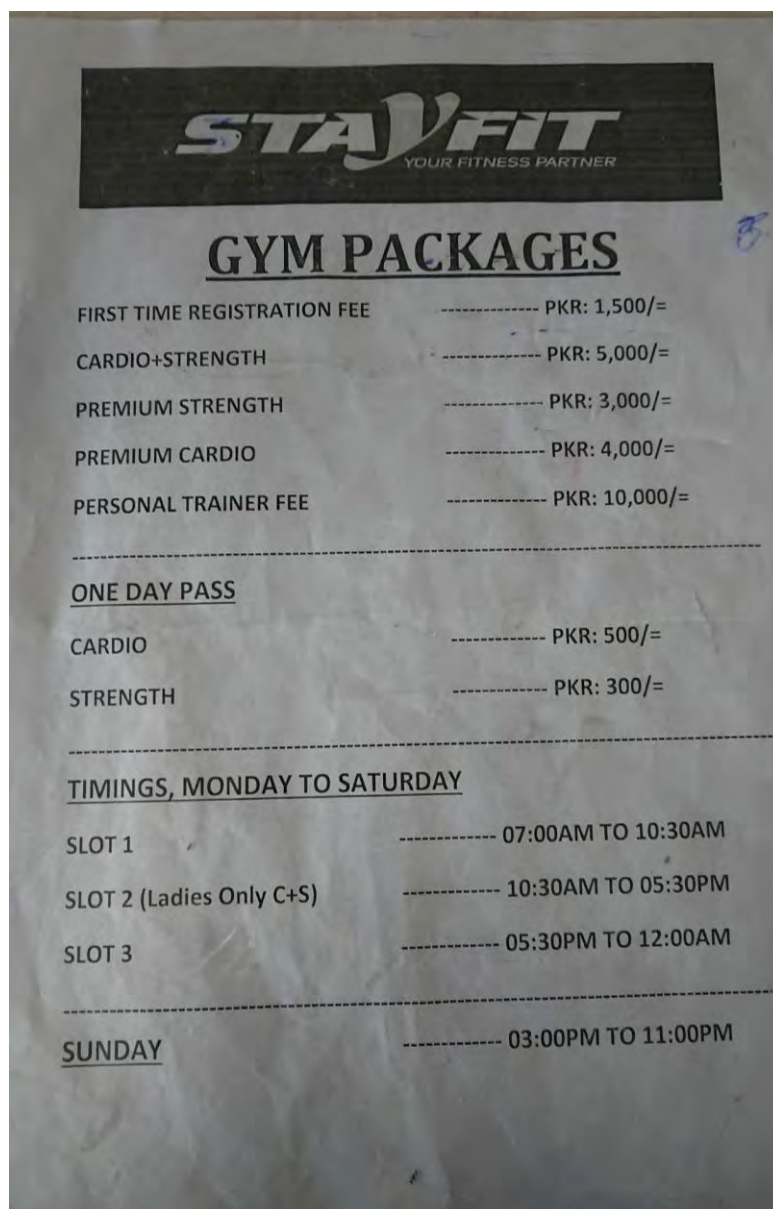 STAYFIT
YOUR FITNESS PARTNER
GYM PACKAGES
FIRST TIME REGISTRATION FEE ------------- PKR: 1,500/=
CARDIO+STRENGTH ------------- PKR: 5,000/=
PREMIUM STRENGTH ------------- PKR: 3,000/=
PREMIUM CARDIO ------------- PKR: 4,000/=
PERSONAL TRAINER FEE ------------- PKR: 10,000/=
ONE DAY PASS
CARDIO ------------- PKR: 500/=
STRENGTH ------------- PKR: 300/=
TIMINGS, MONDAY TO SATURDAY
SLOT 1 ------------- 07:00AM TO 10:30AM
SLOT 2 (Ladies Only C+S) ------------- 10:30AM TO 05:30PM
SLOT 3 ------------- 05:30PM TO 12:00AM
SUNDAY ------------- 03:00PM TO 11:00PM